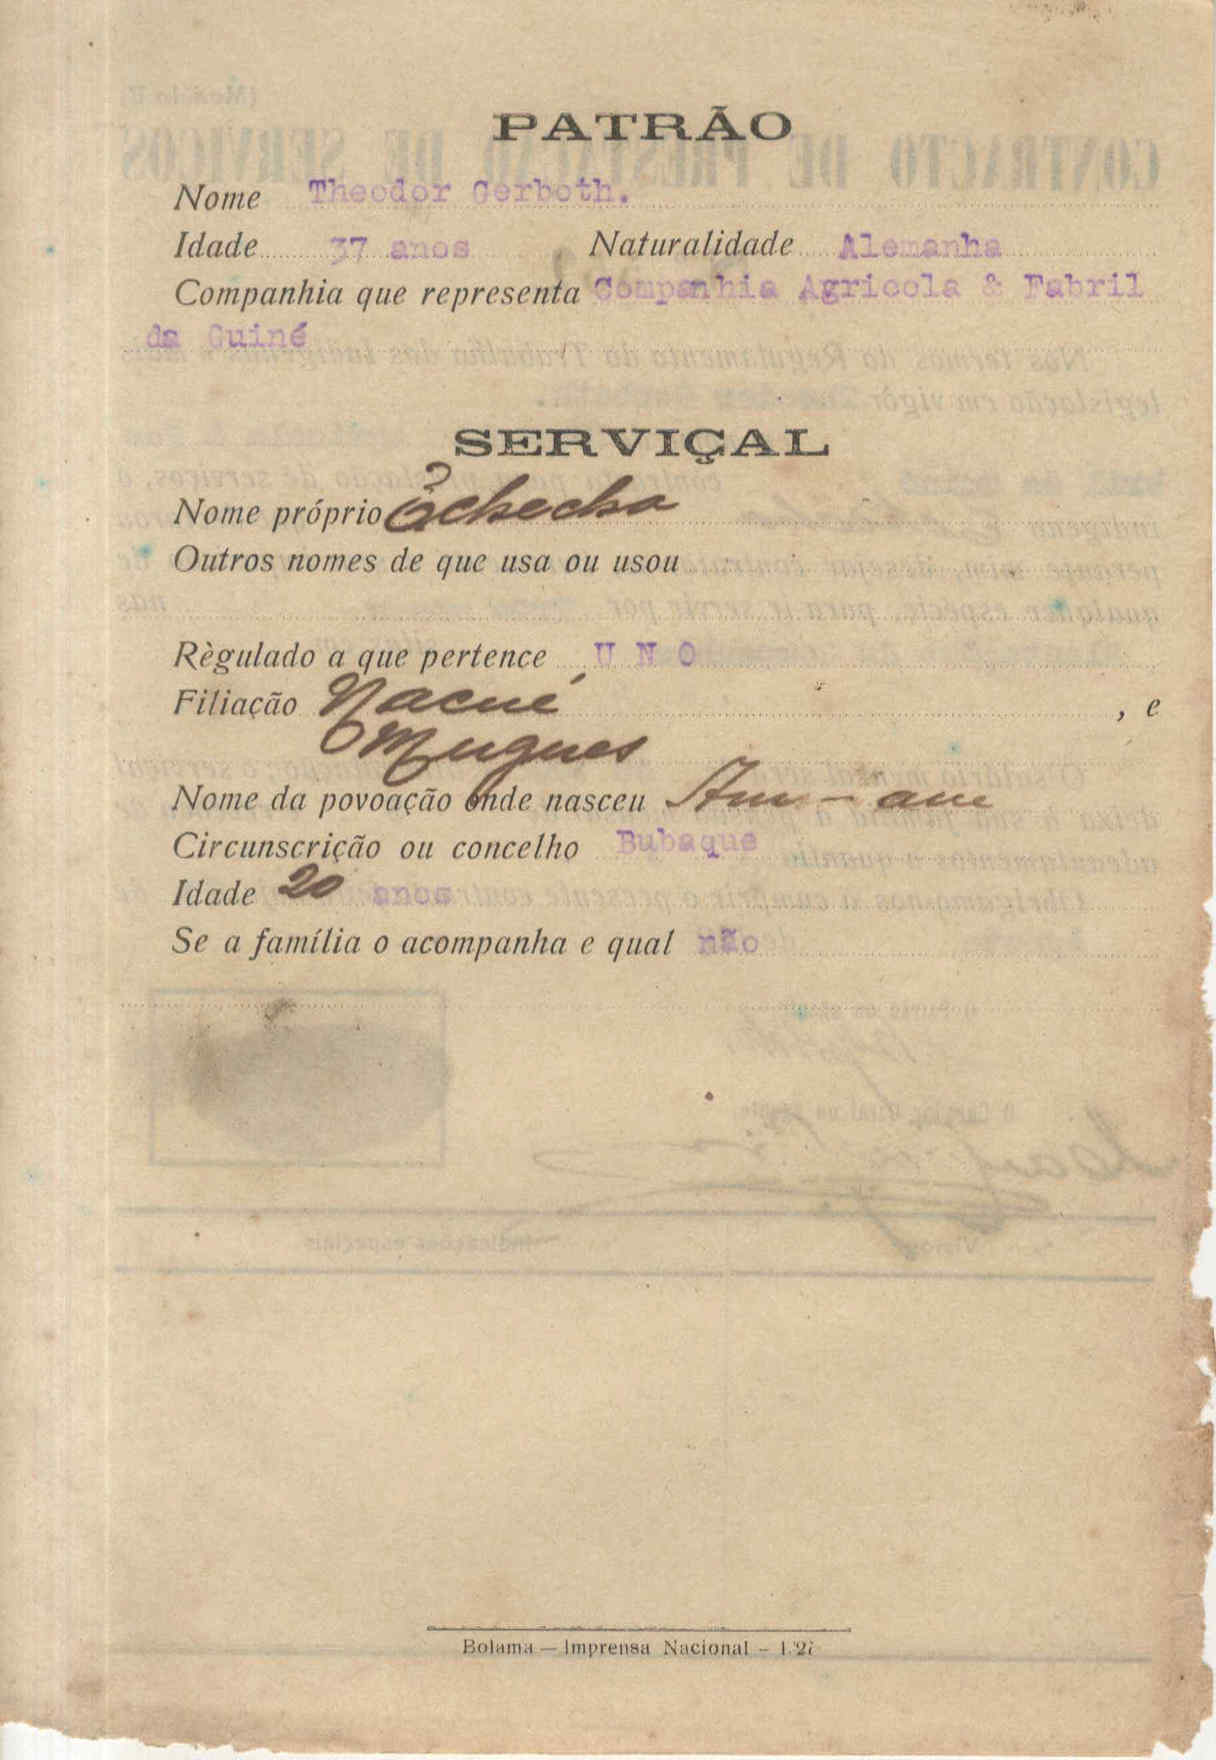 PATRÃO
Nome Theodor Gerboth.
Idade 37 anos Naturalidade Alemanha
Companhia que representa Companhia Agricola & Fabril
da Guiné
SERVIÇAL
Nome próprio
Outros nomes de que usa ou usou
Règulado a que pertence U N O
Filiação Nacué , e
Nome da povoação onde nasceu
Circunscrição ou concelho Bubaque
Idade 20 anos
Se a família o acompanha e qual não
Bolama — Imprensa Nacional –